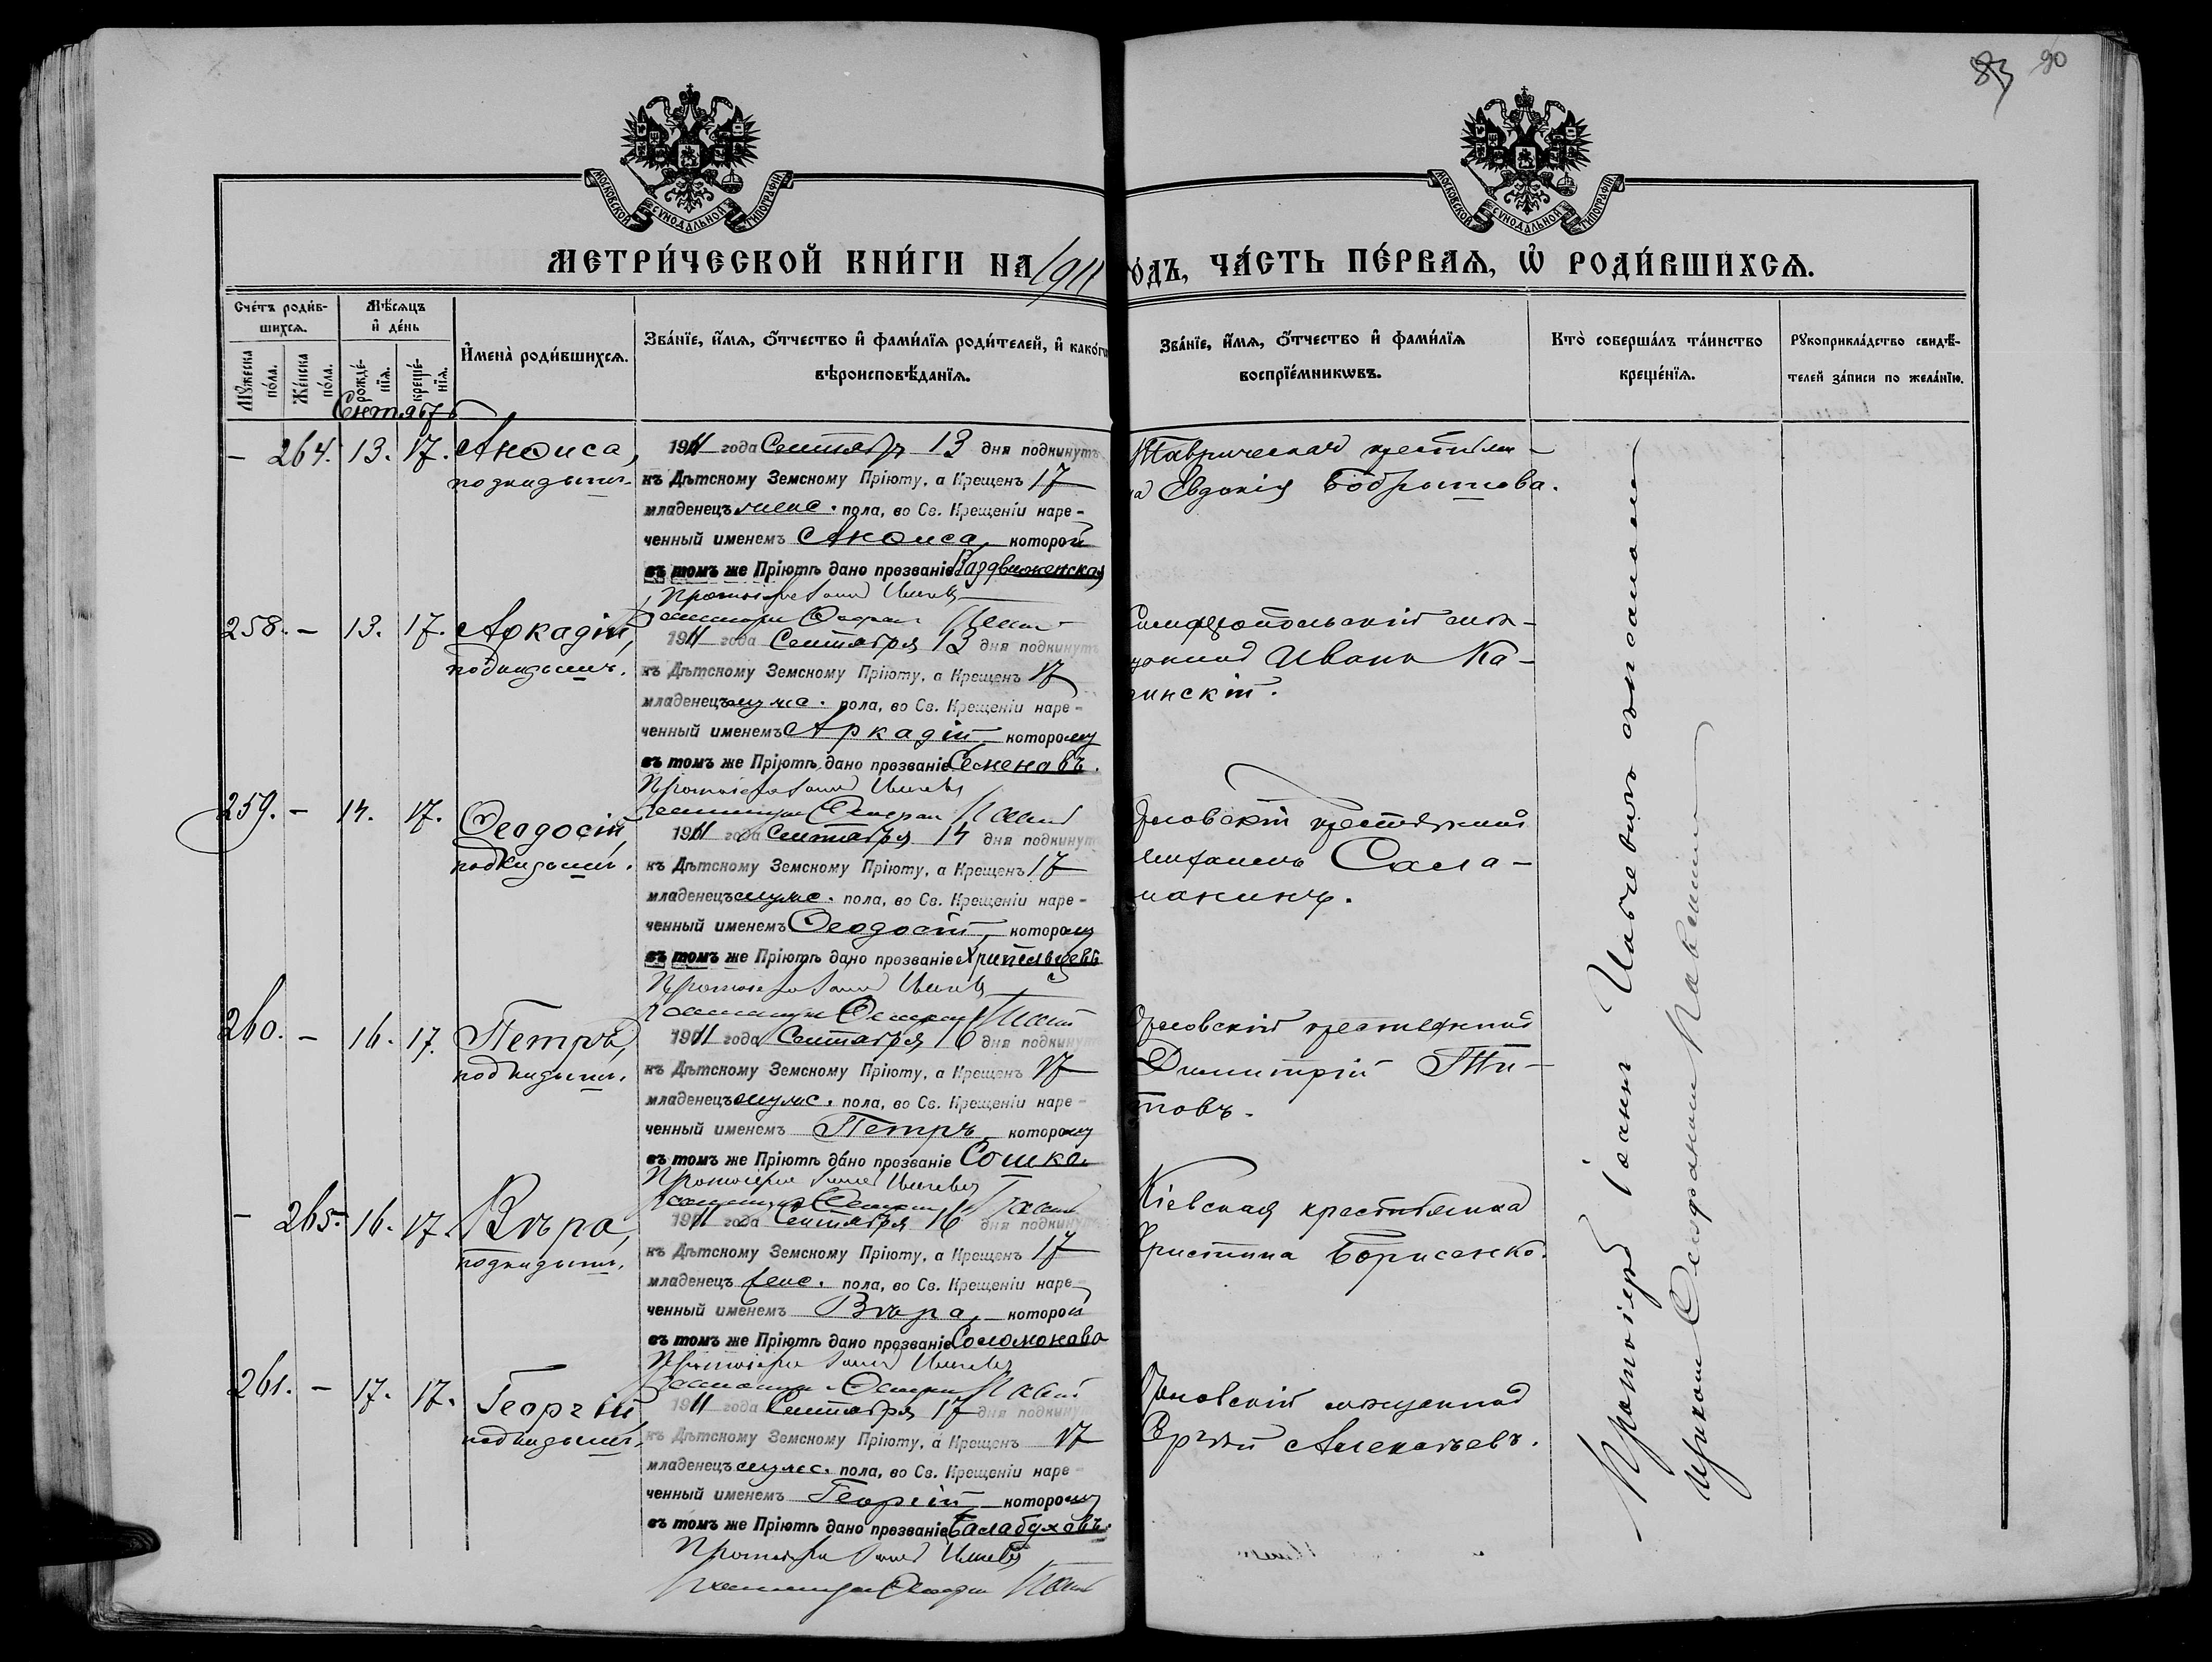 83 90
МОСКОВСКОЙ СѴНОДАЛЬНОЙ ТИПОГРАФІИ
МОСКОВСКОЙ СѴНОДАЛЬНОЙ ТИПОГРАФІИ
МЕТРИ́ЧЕСКОЙ КНИ́ГИ НА 1911
ОДЪ, ЧА́СТЬ ПЕ́РВАѦ, Ѡ҆ РОДИ́ВШИХСѦ.
Сче́тъ роди́в-
шихсѧ.
Мѣ́сѧцъ
и҆ де́нь
Мꙋ́жеска по́ла.
Же́нска по́ла.
рожде́-нїѧ.
креще́-нїѧ.
И҆мена̀ роди́вшихсѧ.
Зва́нїе, и҆́мѧ, ѻ҆́тчество и҆ фами́лїѧ роди́телей, и҆ како́гѡ
вѣроисповѣ́данїѧ.
Зва́нїе, и҆́мѧ, ѻ҆́тчество и҆ фами́лїѧ
воспрїе́мникѡвъ.
Кто̀ соверша́лъ та́инство
креще́нїѧ.
Рꙋкоприкла́дство свидѣ́-
телей за́писи по жела́нїю.
Сентябрь
– 264. 13. 17. Анѳиса,
подкидышъ.
1911 года Сентябр 13 дня подкинутъ
къ Дѣтскому Земскому Пріюту, а Крещенъ 17
младенецъ женс. пола, во Св. Крещеніи наре-
ченный именемъ Анѳиса, которой
въ томъ же Пріютѣ дано прозваніе Воздвиженская
Таврическая крестьян-
ка Евдокія Бобрышова.
258. – 13. 17. Аркадій,
подкидышъ.
1911 года Сентября 13 дня подкинутъ
къ Дѣтскому Земскому Пріюту, а Крещенъ 17
младенецъ мужс. пола, во Св. Крещеніи наре-
ченный именемъ Аркадій, которому
въ томъ же Пріютѣ дано прозваніе Семеновъ.
Симферопольскій мѣ-
щанинъ Иванъ Ка-
инскій.
259. – 14. 17. Ѳеодосій,
подкидышъ.
1911 года Сентября 14 дня подкинутъ
къ Дѣтскому Земскому Пріюту, а Крещенъ 17
младенецъ мужс. пола, во Св. Крещеніи наре-
ченный именемъ Ѳеодосій, которому
въ томъ же Пріютѣ дано прозваніе
Орловскій крестьянинъ
260. – 16. 17. Петръ,
подкидышъ.
1911 года Сентября 16 дня подкинутъ
къ Дѣтскому Земскому Пріюту, а Крещенъ 17
младенецъ мужс. пола, во Св. Крещеніи наре-
ченный именемъ Петръ, которому
въ томъ же Пріютѣ дано прозваніе Сошка
Орловскій крестьянинъ
Димитрій Ти-
товъ.
– 265. 16. 17. Вѣра,
подкидышъ.
1911 года Сентября 16 дня подкинутъ
къ Дѣтскому Земскому Пріюту, а Крещенъ 17
младенецъ женс. пола, во Св. Крещеніи наре-
ченный именемъ Вѣра, которой
въ томъ же Пріютѣ дано прозваніе Соломонова
Кіевская крестьянка
Христина Борисенко.
261. – 17. 17. Георгій
подкидышъ.
1911 года Сентября 17 дня подкинутъ
къ Дѣтскому Земскому Пріюту, а Крещенъ 17
младенецъ мужс. пола, во Св. Крещеніи наре-
ченный именемъ Георгій, которому
въ томъ же Пріютѣ дано прозваніе Балабуховъ.
Орловскій мѣщанинъ
Сергѣй Алексѣевъ.
Протоіерей Іоаннъ